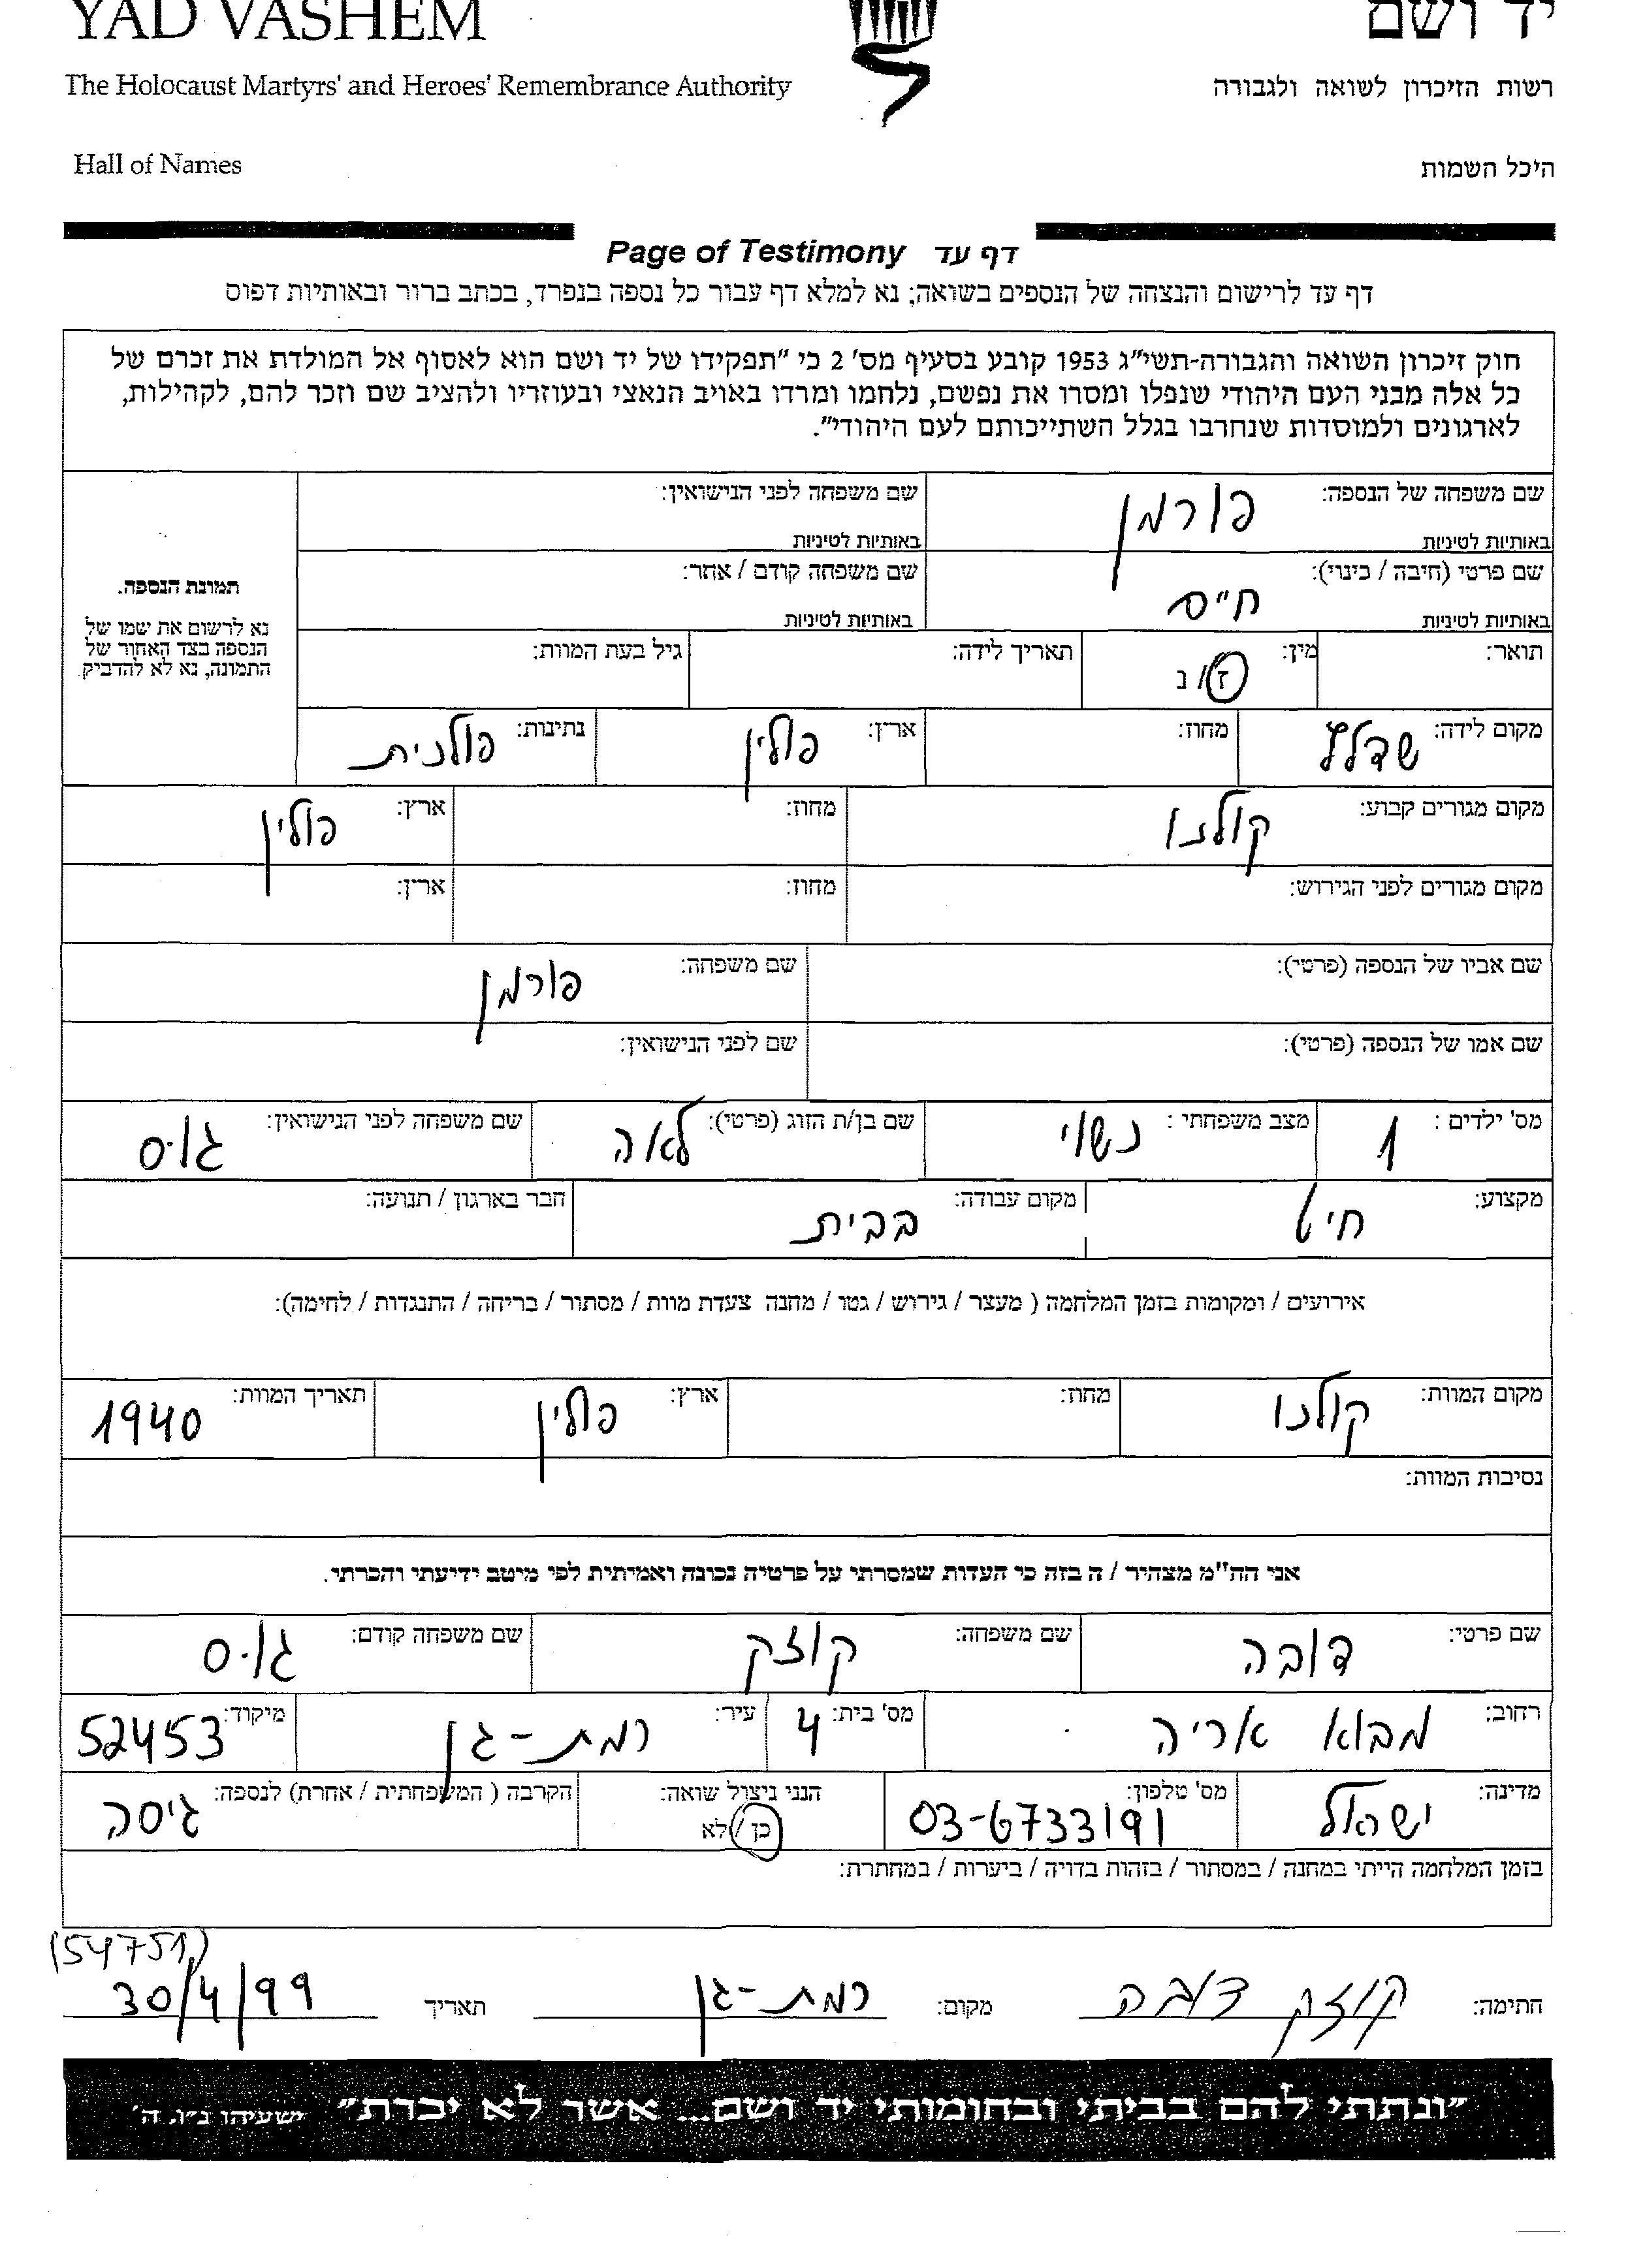 YAD VASHEM יד ושם
The Holocaust Martyrs' and Heroes' Remembrance Authority רשות הזיכרון לשואה ולגבורה
Hall of Names היכל השמות
Page of Testimony דף עד
דף עד לרישום והנצחה של הנספים בשואה; נא למלא דף עבור כל נספה בנפרד, בכתב ברור ובאותיות דפוס
חוק זיכרון השואה והגבורה-תשי"ג 1953 קובע בסעיף מס' 2 כי "תפקידו של יד ושם הוא לאסוף אל המולדת את זכרם של
כל אלה מבני העם היהודי שנפלו ומסרו את נפשם, נלחמו ומרדו באויב הנאצי ובעוזריו ולהציב שם וזכר להם, לקהילות,
לארגונים ולמוסדות שנחרבו בגלל השתייכותם לעם היהודי".
שם משפחה של הנספה: פורמן שם משפחה לפני הנישואין:
באותיות לטיניות באותיות לטיניות
שם פרטי (חיבה / כינוי): חיים שם משפחה קודם / אחר:
באותיות לטיניות באותיות לטיניות
תמונת הנספה.
נא לרשום את שמו של
הנספה בצד האחור של
התמונה, נא לא להדביק
תואר: מין: ז / נ תאריך לידה: גיל בעת המוות:
מקום לידה: שדלץ מחוז: ארץ: פולין נתינות: פולנית
מקום מגורים קבוע: קולנו מחוז: ארץ: פולין
מקום מגורים לפני הגירוש: מחוז: ארץ:
שם אביו של הנספה (פרטי): שם משפחה: פורמן
שם אמו של הנספה (פרטי): שם לפני הנישואין:
מס' ילדים : 1 מצב משפחתי : נשוי שם בן/ת הזוג (פרטי): לאה שם משפחה לפני הנישואין: גויס
מקצוע: חייט מקום עבודה: בבית חבר בארגון / תנועה:
אירועים / ומקומות בזמן המלחמה ( מעצר / גירוש / גטו / מחנה צעדת מוות / מסתור / בריחה / התנגדות / לחימה):
מקום המוות: קולנו מחוז: ארץ: פולין תאריך המוות: 1940
נסיבות המוות:
אני הח"מ מצהיר / ה בזה כי העדות שמסרתי על פרטיה נכונה ואמיתית לפי מיטב ידיעתי והכרתי.
שם פרטי: דובה שם משפחה: קוזק שם משפחה קודם: גויס
רחוב: מבוא אריה מס' בית: 4 עיר: רמת-גן מיקוד: 52453
מדינה: ישראל מס' טלפון: 03-6733191 הנני ניצול שואה: כן / לא הקרבה ( המשפחתית / אחרת) לנספה: גיסה
בזמן המלחמה הייתי במחנה / במסתור / בזהות בדויה / ביערות / במחתרת:
(54751)
חתימה: קוזק דובה מקום: רמת-גן תאריך 30/4/99
"ונתתי להם בביתי ובחומותי יד ושם... אשר לא יכרת" ישעיהו נ"ו, ה'